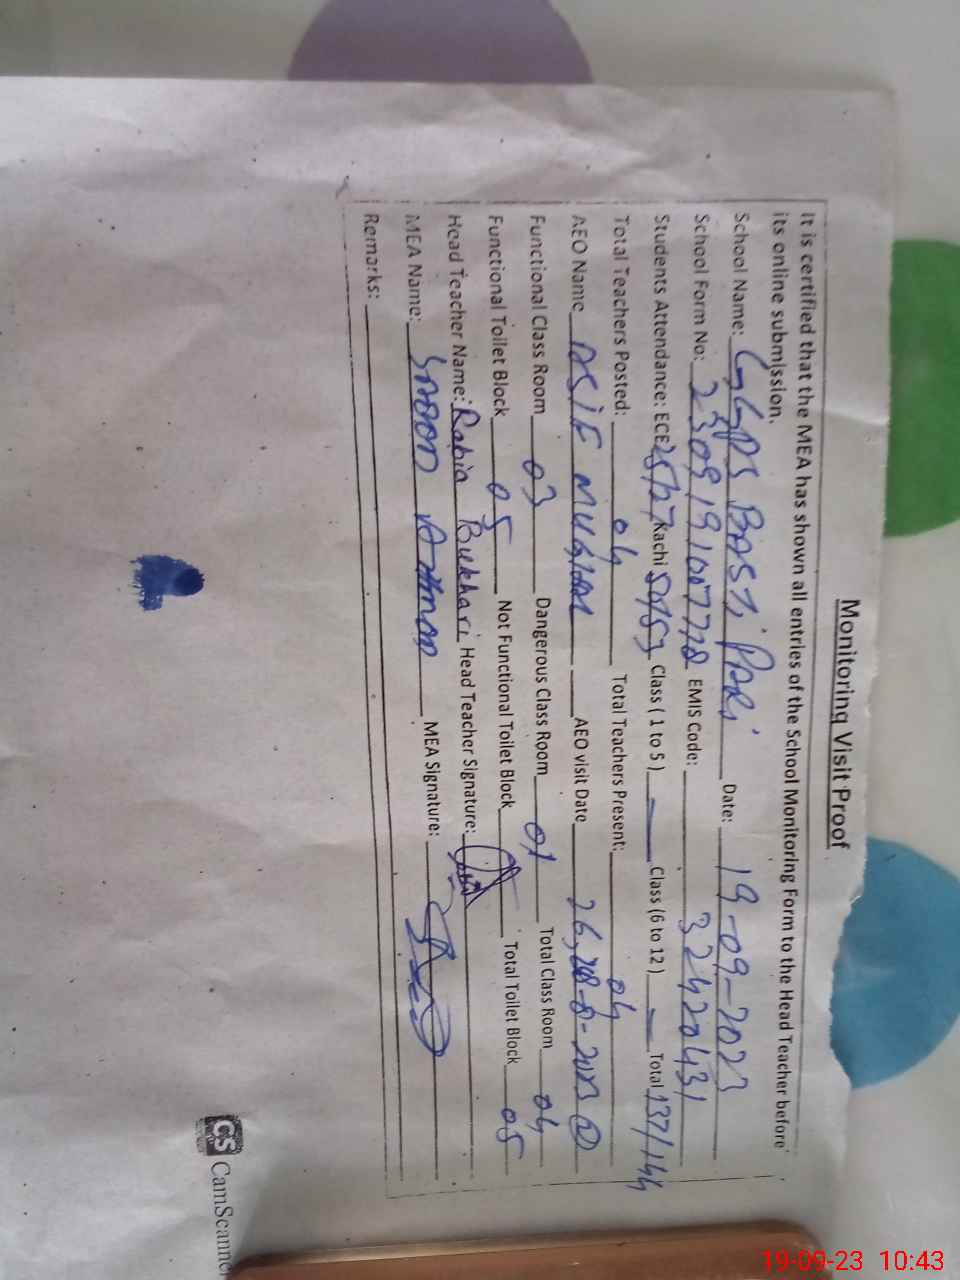 Monitoring Visit Proof
It is certified that the MEA has shown all entries of the School Monitoring Form to the Head Teacher before
its online submission.
School Name: GGPS BASTI PARI Date: 19-09-2023
School Form No: EMIS Code: 32420431
Students Attendance: ECE 25/27 Kachi Class ( 1 to 5 ) — Class (6 to 12 ) — Total 137/144
Total Teachers Posted: 04 Total Teachers Present: 04
AEO Name ASIF MUGHAL AEO visit Date 26,28-8-2023 (2)
Functional Class Room 03 Dangerous Class Room 01 Total Class Room 04
Functional Toilet Block 05 Not Functional Toilet Block Total Toilet Block 05
Head Teacher Name: Rabia Bukhari Head Teacher Signature:
MEA Name: MEA Signature:
Remarks:
CS CamScanner
19-09-23 10:43